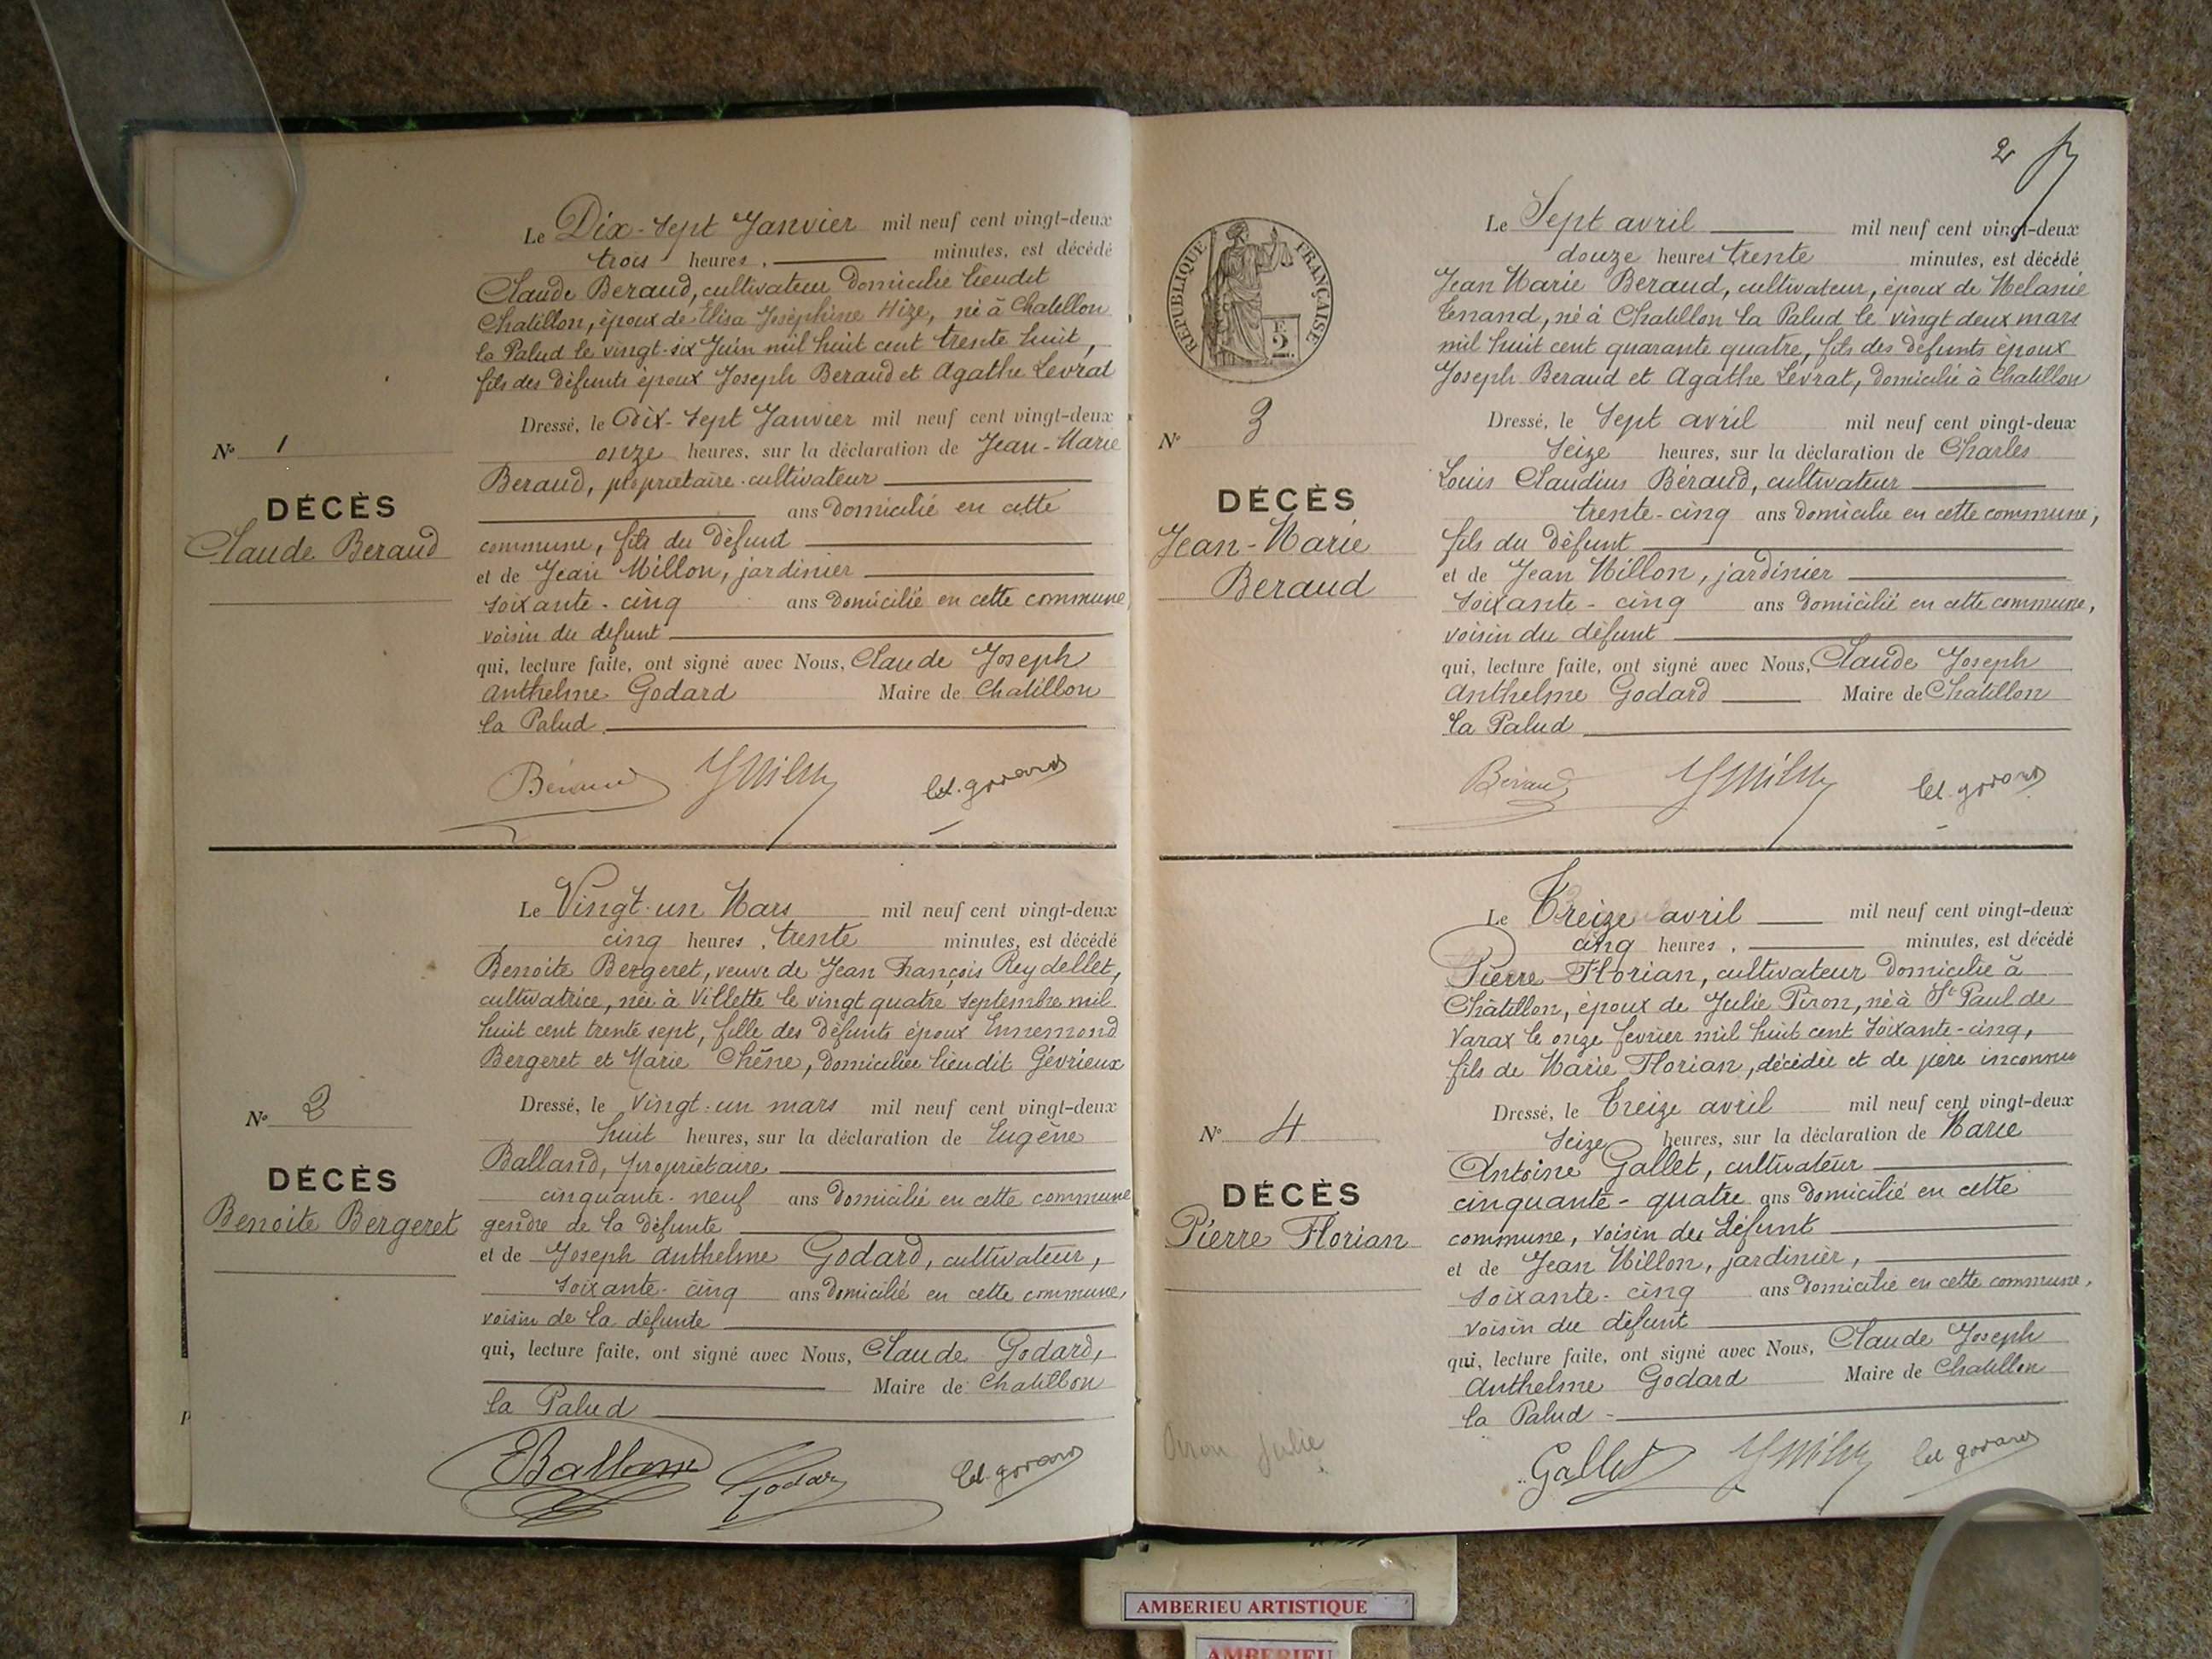 Le Dix-sept Janvier mil neuf cent vingt-deux
trois heures, minutes, est décédé
Claude Beraud, cultivateur domicilié lieudit
Chatillon, époux de Elisa Joséphine Hize, né à Chatillon
la Palud le vingt-six Juin mil huit cent trente huit,
fils des défunts époux Joseph Beraud et Agathe Levrat
Dressé, le Dix-sept Janvier mil neuf cent vingt-deux
onze heures, sur la déclaration de Jean-Marie
Beraud, propriétaire-cultivateur
ans domicilié en cette
commune, fils du défunt
et de Jean Millon, jardinier
soixante-cinq ans domicilié en cette commune
voisin du défunt
qui, lecture faite, ont signé avec Nous, Claude Joseph
Anthelme Godard Maire de Chatillon
la Palud
No 1
DÉCÈS
Claude Beraud
Béraud
Le Vingt-un Mars mil neuf cent vingt-deux
cinq heures, trente minutes, est décédé
Benoite Bergeret, veuve de Jean François Reydellet,
cultivatrice, née à Villette le vingt quatre septembre mil
huit cent trente sept, fille des défunts époux Ennemond
Bergeret et Marie Chêne, domiciliée lieudit Gévrieux
Dressé, le Vingt-un mars mil neuf cent vingt-deux
huit heures, sur la déclaration de Eugène
Balland, propriétaire
cinquante-neuf ans domicilié en cette commune
gendre de la défunte
et de Joseph Anthelme Godard, cultivateur,
soixante-cinq ans domicilié en cette commune,
voisin de la défunte
qui, lecture faite, ont signé avec Nous, Claude Godard,
Maire de Chatillon
la Palud
No 2
DÉCÈS
Benoite Bergeret
EBalland Godard
2
RÉPUBLIQUE FRANÇAISE
2
Le Sept avril mil neuf cent vingt-deux
douze heures trente minutes, est décédé
Jean Marie Beraud, cultivateur, époux de Mélanie
Tenand, né à Chatillon la Palud le vingt deux mars
mil huit cent quarante quatre, fils des défunts époux
Joseph Beraud et Agathe Levrat, domicilié à Chatillon
Dressé, le Sept avril mil neuf cent vingt-deux
seize heures, sur la déclaration de Charles
Louis Claudius Béraud, cultivateur
trente-cinq ans domicilié en cette commune,
fils du défunt
et de Jean Millon, jardinier
soixante-cinq ans domicilié en cette commune,
voisin du défunt
qui, lecture faite, ont signé avec Nous, Claude Joseph
Anthelme Godard Maire de Chatillon
la Palud
No 3
DÉCÈS
Jean-Marie
Beraud
Béraud
Le Treize avril mil neuf cent vingt-deux
cinq heures, minutes, est décédé
Pierre Florian, cultivateur domicilié à
Châtillon, époux de Julie Piron, né à St Paul de
Varax le onze février mil huit cent soixante-cinq,
fils de Marie Florian, décédée et de père inconnu
Dressé, le Treize avril mil neuf cent vingt-deux
seize heures, sur la déclaration de Marie
Antoine Gallet, cultivateur
cinquante-quatre ans domicilié en cette
commune, voisin du défunt
et de Jean Millon, jardinier,
soixante-cinq ans domicilié en cette commune,
voisin du défunt
qui, lecture faite, ont signé avec Nous, Claude Joseph
Anthelme Godard Maire de Chatillon
la Palud
No 4
DÉCÈS
Pierre Florian
Julie
Gallet
AMBERIEU ARTISTIQUE
AMBERIEU